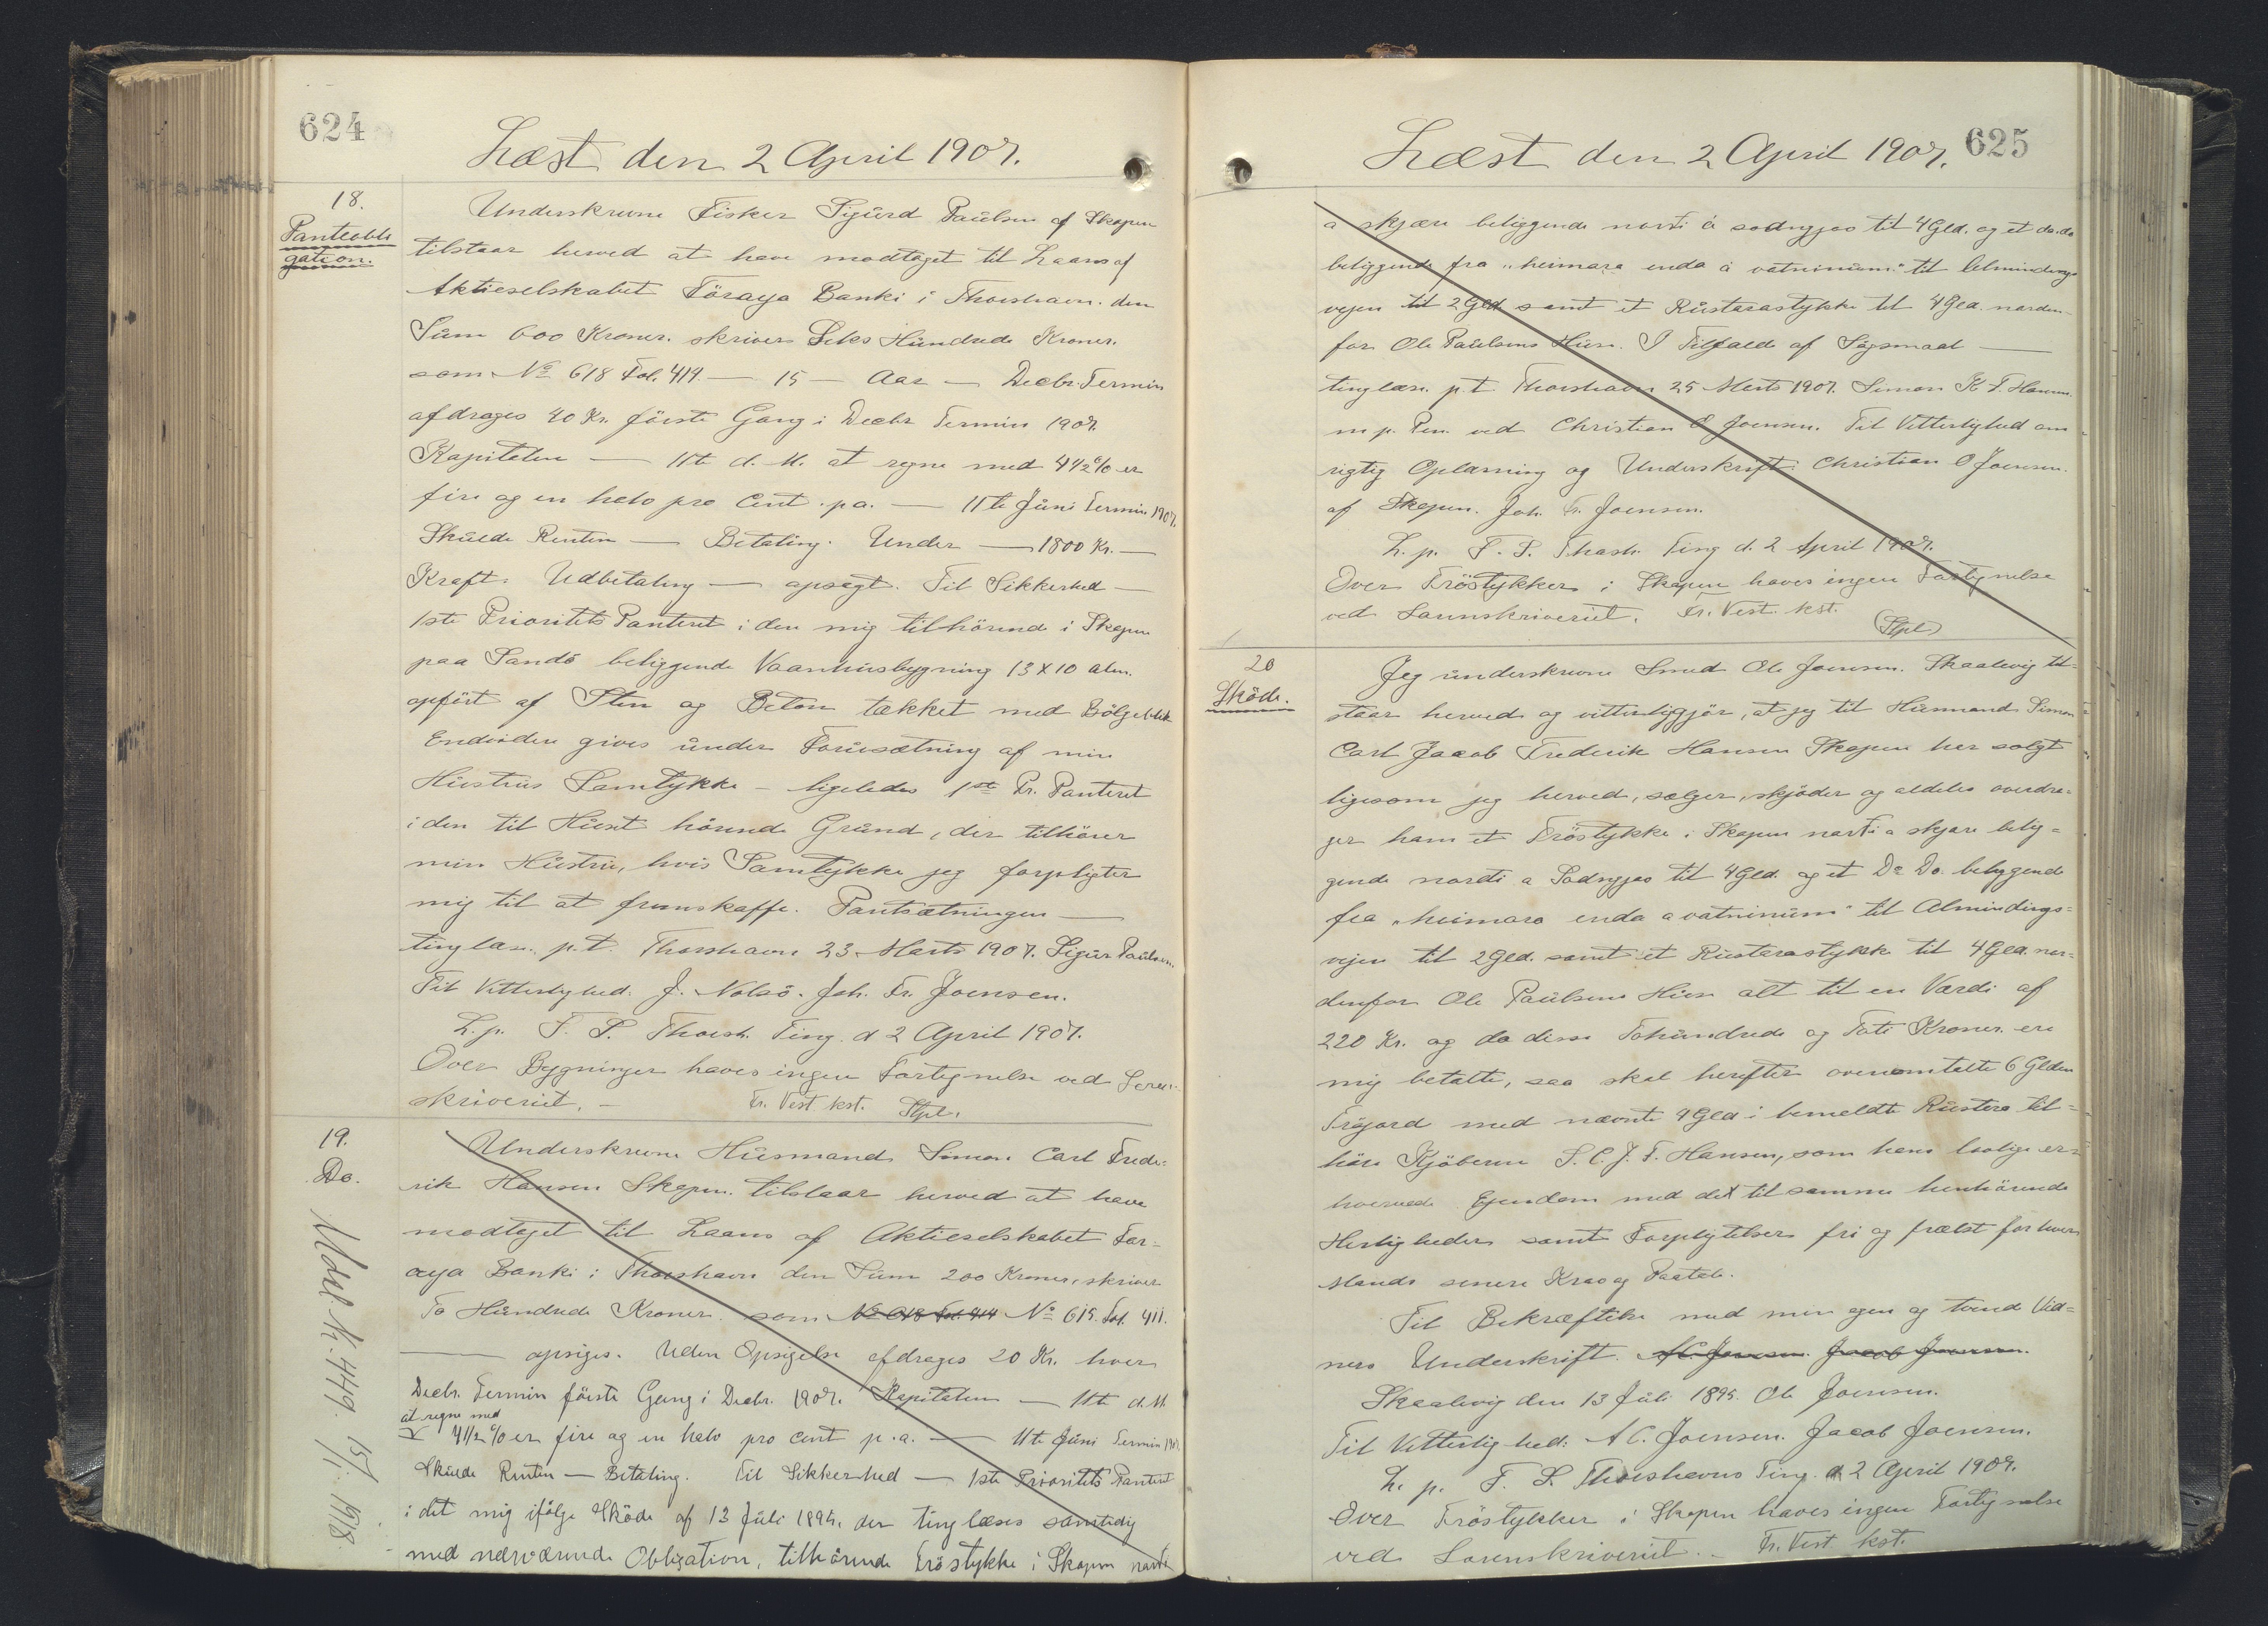 624
Læst den 2 April 1907.
18.
Panteobli
gation.
Underskrevne Fisker Sigurd Paulsen af Skopun
tilstaar herved at have modtaget til Laans af
Aktieselskabet Föroya Banki i Thorshavn den
Sum 600 Kroner. skriver Seks Hundrede Kroner.
som No 618 Fol. 419. — 15 — Aar — Decbr. Termin
afdrages 40 Kr. förste Gang i Decbr Termin 1907.
Kapitalen — 11te d. M. at regne med 4 1/2 % er
fire og en halv pro Cent. p.a. — 11te Juni Termin 1907.
Skulde Renten — Betaling. Under — 1800 Kr. —
Kraft. Udbetaling — opsagt. Til Sikkerhed —
1ste Prioritets Panteret i den mig tilhörende i Skopun
paa Sandö beliggende Vaanhusbygning 13 x 10 alm.
opfört af Sten og Beton tækket med Bölgeblik
Endvidere gives under Forudsætning af min
Hustrus Samtykke — ligeledes 1ste Pr. Panteret
i den til Huset hörende Grund, der tilhörer
min Hustru, hvis Samtykke jeg forpligter
mig til at fremskaffe. Pantsætningen —
tinglæses. p.t. Thorshavn 23 Marts 1907. Sigur Paulsen.
Til Vitterlighed. J. Nolsö. Joh. Fr. Joensen.
L. p. F. S. Thorsh. Ting. d 2 April 1907.
Over Bygninger haves ingen Fortegnelse ved Soren-
skriveriet. — Fr. Vest kst. Stpl.
19.
Do.
Udsl. N. 449. 15/1. 1918.
Underskrevne Husmand Simon Carl Frede-
rik Hansen Skopun. tilstaar herved at have
modtaget til Laans af Aktieselskabet För-
oya Banki i Thorshavn den Sum 200 Kroner, skriver
To Hundrede Kroner. som No 618 Fol. 414 No 615. Fol. 411.
— opsiges. Uden Opsigelse afdrages 20 Kr. hver
Decbr. Termin förste Gang i Decbr. 1907. Kapitalen — 11te d. M.
at regne med
4 1/2 % er fire og en halv pro cent p.a. — 11te Juni Termin 1907
Skulde Renten — Betaling. Til Sikkerhed — 1ste Prioritets Panteret
i det mig ifölge Sköde af 13 Juli 1895, der tinglæses samtidig
med nærværende Obligation, tilhörende Tröstykke i Skopun norti
625
Læst den 2 April 1907.
a skjæra beliggende norti á sodngjao til 4 Gld. og et do. do
beliggende fra "heimara enda á vatninum" til Almindings
vejen til 2 Gld samt et Rustarastykke til 4 Gld. norden-
for Ole Paulsens Hus. I Tilfælde af Sögsmaal —
tinglæses. p.t. Thorshavn 25 Marts 1907. Simon K. F. Hansen.
m.p. Pen. ved Christian O Joensen. Til Vitterlighed om
rigtig Oplæsning og Underskrift: Christian O Joensen.
af Skopun. Joh. Fr. Joensen.
L. p. F. S. Thosh. Ting d. 2 April 1907.
Over Tröstykker i Skopun haves ingen Fortegnelse
ved Sorenskriveriet. Fr. Vest. kst.
(Stpl)
20
Sköde.
Jeg underskrevne Smed Ole Joensen. Skaalevig til-
staar herved og vitterliggjör, at jeg til Husmand Simon
Carl Jacob Frederik Hansen Skopun har solgt
ligesom jeg herved, sælger, skjöder og aldeles overdra-
ger ham et Tröstykke i Skopun norti a skjæra belig-
gende nordi a Sodngjao til 4 Gld. og et Do Do. beliggende
fra "heimara enda a vatninum" til Almindings-
vejen til 2 Gld. samt et Rustarastykke til 4 Gld. nor-
denfor Ole Paulsens Hus alt til en Værdi af
220 Kr. og da disse Tohundrede og Tati Kroner. ere
mig betalte, saa skal herefter ovenomtalte 6 Gylden
Tröjord med nævnte 4 Gld i bemeldte Rustara til-
höre Kjöberen S. C. J. F. Hansen, som hans lovlige er-
hvervede Ejendom med det til samme henhörende
Herligheder samt Forpligtelser fri og frælst for hver
Mands senere Krav og Paatale.
Til Bekræftelse med min egen og tvende Vid-
ners Underskrift. A C. Joensen. Jacob Joensen.
Skaalevig den 13 Juli 1895. Ole Joensen.
Til Vitterlighed: A C. Joensen. Jacob Joensen.
L. p. F. S. Thorshavns Ting. d 2 April 1907.
Over Tröstykker i Skopun haves ingen Fortegnelse
ved Sorenskriveriet. — Fr. Vest kst.